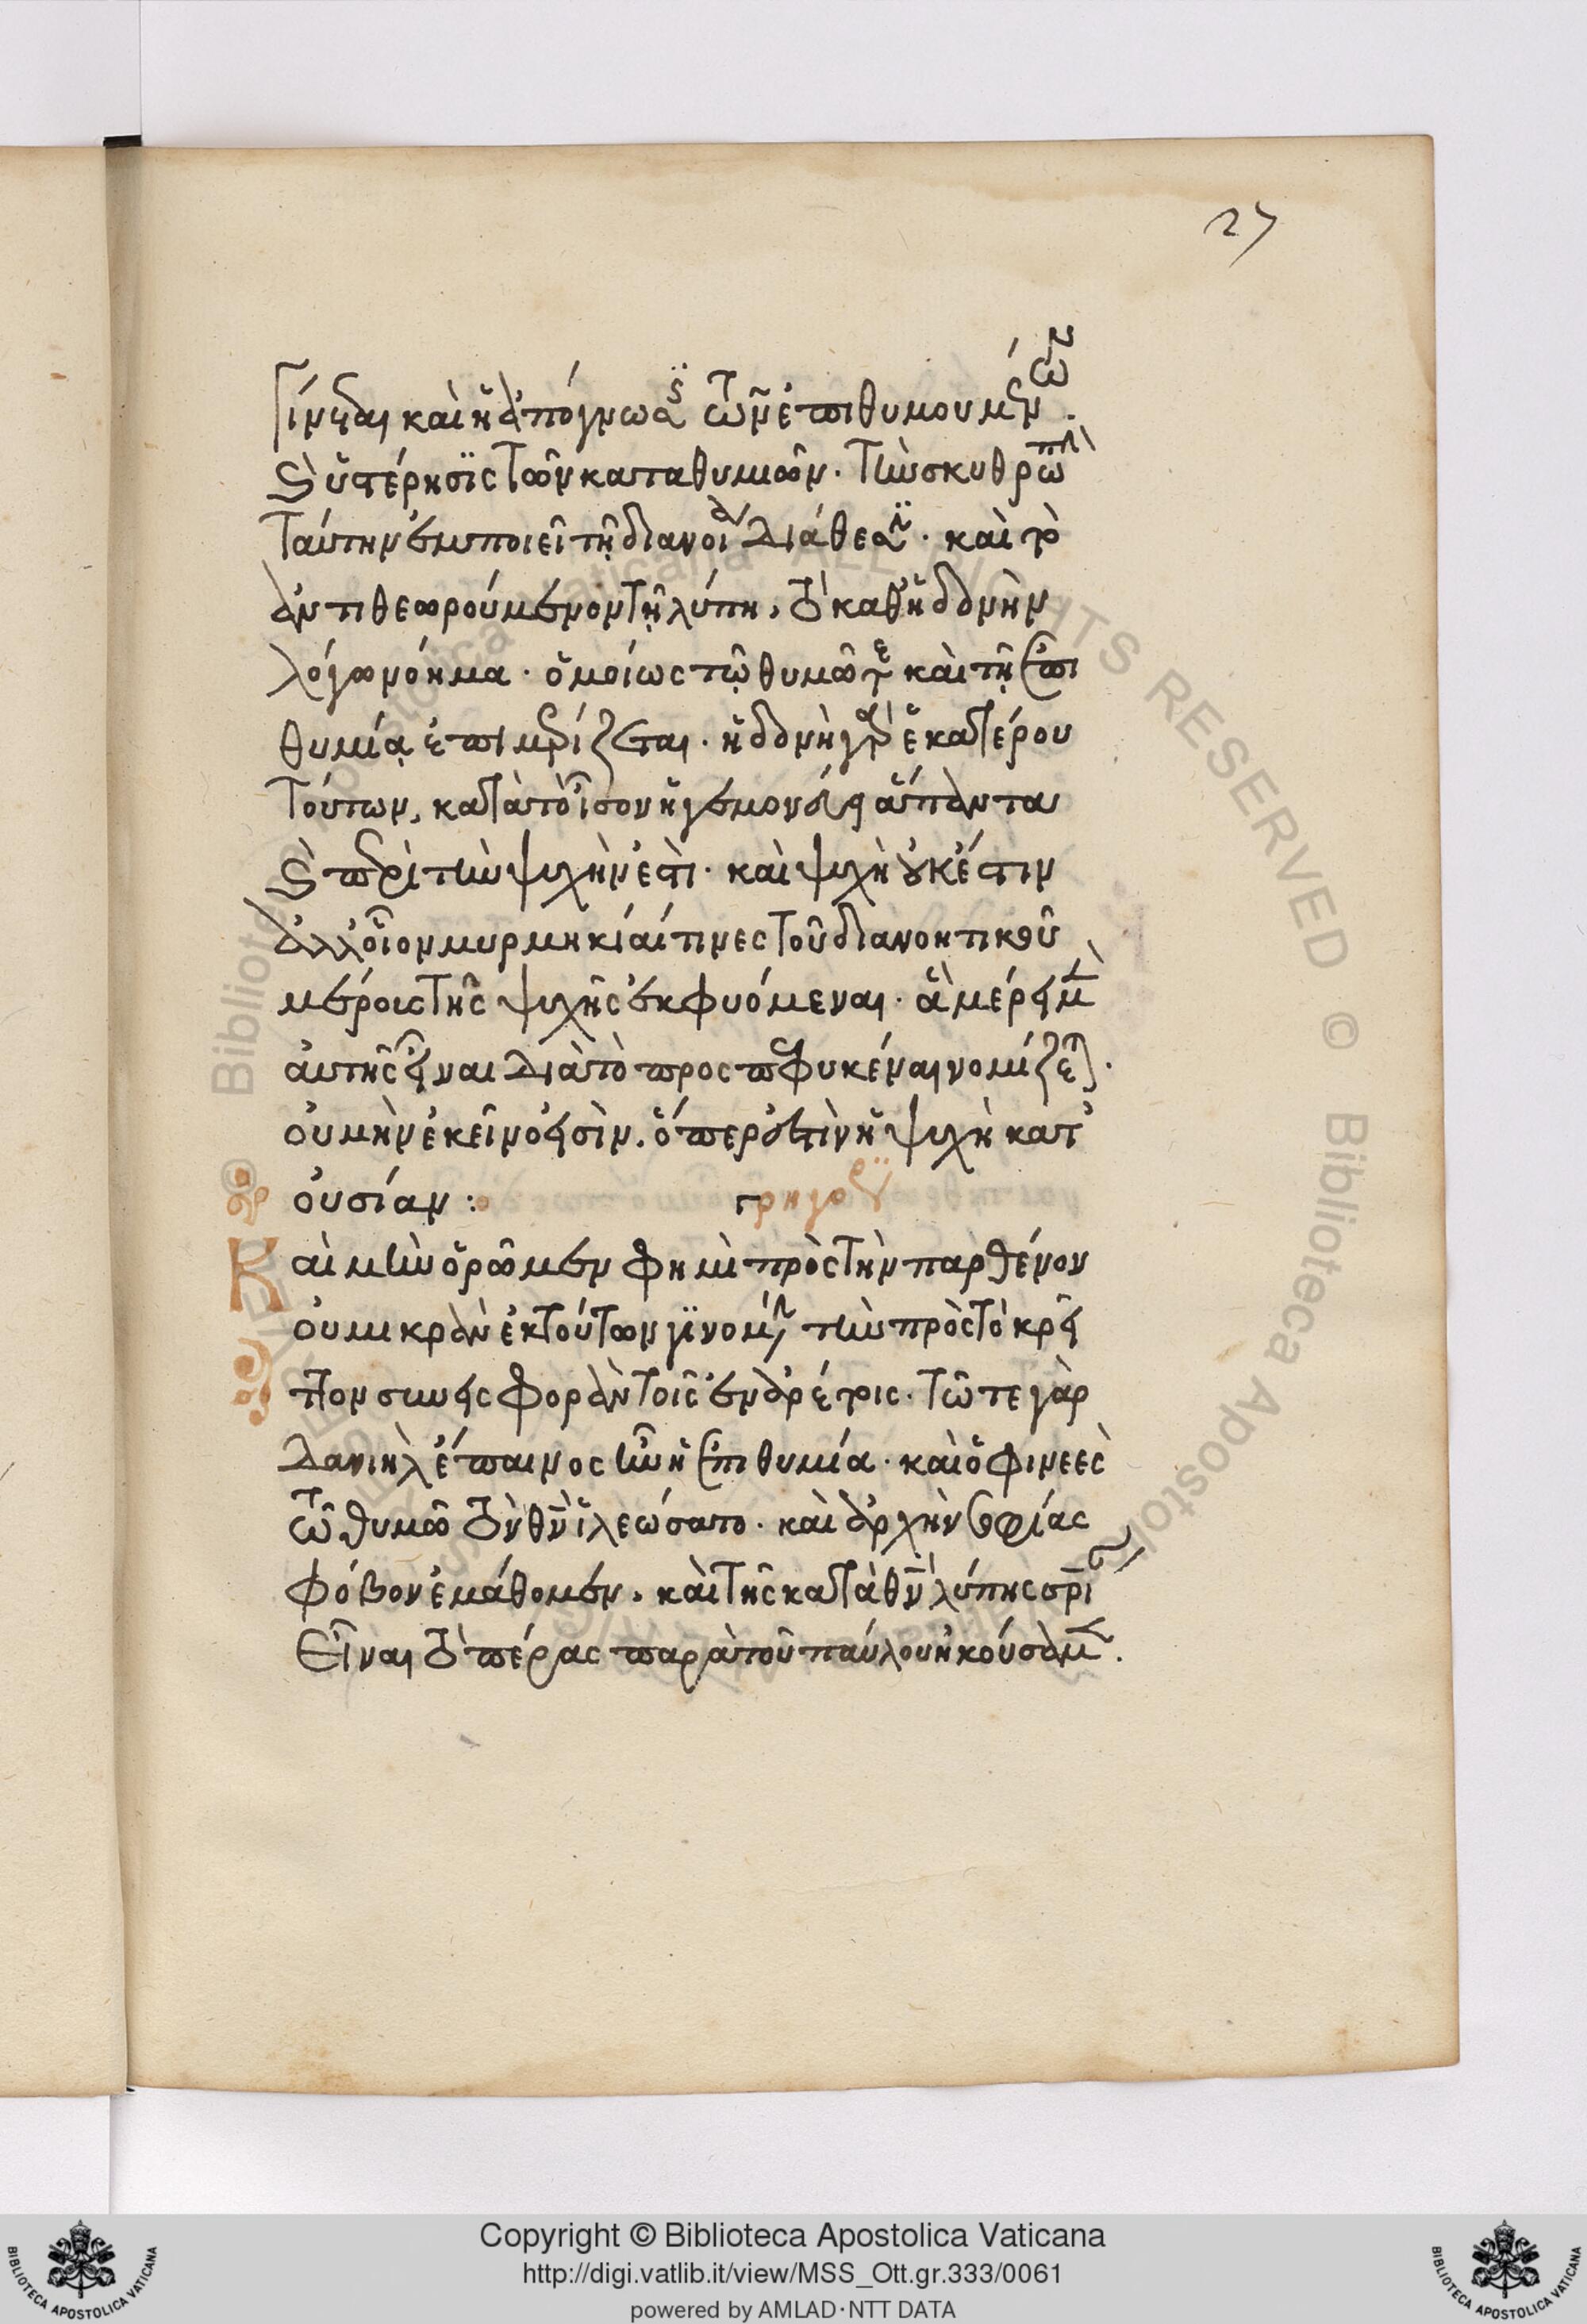 27
Γίνεται καὶ ἡ ἀπόγνωσις τῶν ἐπιθυμουμένων.
καὶ ὑστέρησϊς τῶν καταθυμίων. τὴν σκυθρωπὴν
ταύτην ἐμποιεῖ τῇ διανοίᾳ διάθεσιν. καὶ τὸ
ἀντιθεωρούμενον τῇ λύπῃ, τὸ καθ ἡδονὴν
λέγω νόημα. ὁμοίως τῷ θυμῷ τε καὶ τῇ ἐπι
θυμίᾳ ἐπιμερίζεται. ἡδονὴ γὰρ ἑκατέρου
τούτων, κατὰ τὸ ἶσον ἡγεμονεύει ἅπαντα
καὶ περὶ τὴν ψυχὴν ἐστὶ. καὶ ψυχὴ οὐκ ἔστιν
ἀλλ οἷον μυρμηκίαί τινες τοῦ διανοητικοῦ
μέρους τῆς ψυχῆς ἐκφυόμεναι. ἃ μέρει μὲν
αὐτῆς εἶναι διὰ τὸ προσπεφυκέναι νομίζεται.
οὐ μὴν ἐκεῖνό εἰσὶν. ὅπερ ἐστὶν ἡ ψυχὴ κατ
οὐσίαν :
Γρηγορΐου
Καὶ μὴν ὁρῶμεν φημὶ πρὸς τὴν παρθένον
οὐ μικρὰν ἐκ τούτων γϊνομένην τὴν πρὸς τὸ κρεῖ
ττον συνεισφορὰν τοῖς ἐναρέτοις. τῶ τε γὰρ
Δανιὴλ ἔπαινος ἦν ἡ ἐπιθυμία. καὶ ὁ φινεὲς
τῶ θυμῶ τὸν θν ἱλεώσατο. καὶ ἀρχὴν σοφίας
φόβον ἐμάθομεν, καὶ τῆς κατὰ θν λύπης σρίαν
Εἶναι τὸ πέρας παρὰ τοῦ παύλου ἠκούσαμεν.
Copyright © Biblioteca Apostolica Vaticana
http://digi.vatlib.it/view/MSS_Ott.gr.333/0061
powered by AMLAD·NTT DATA